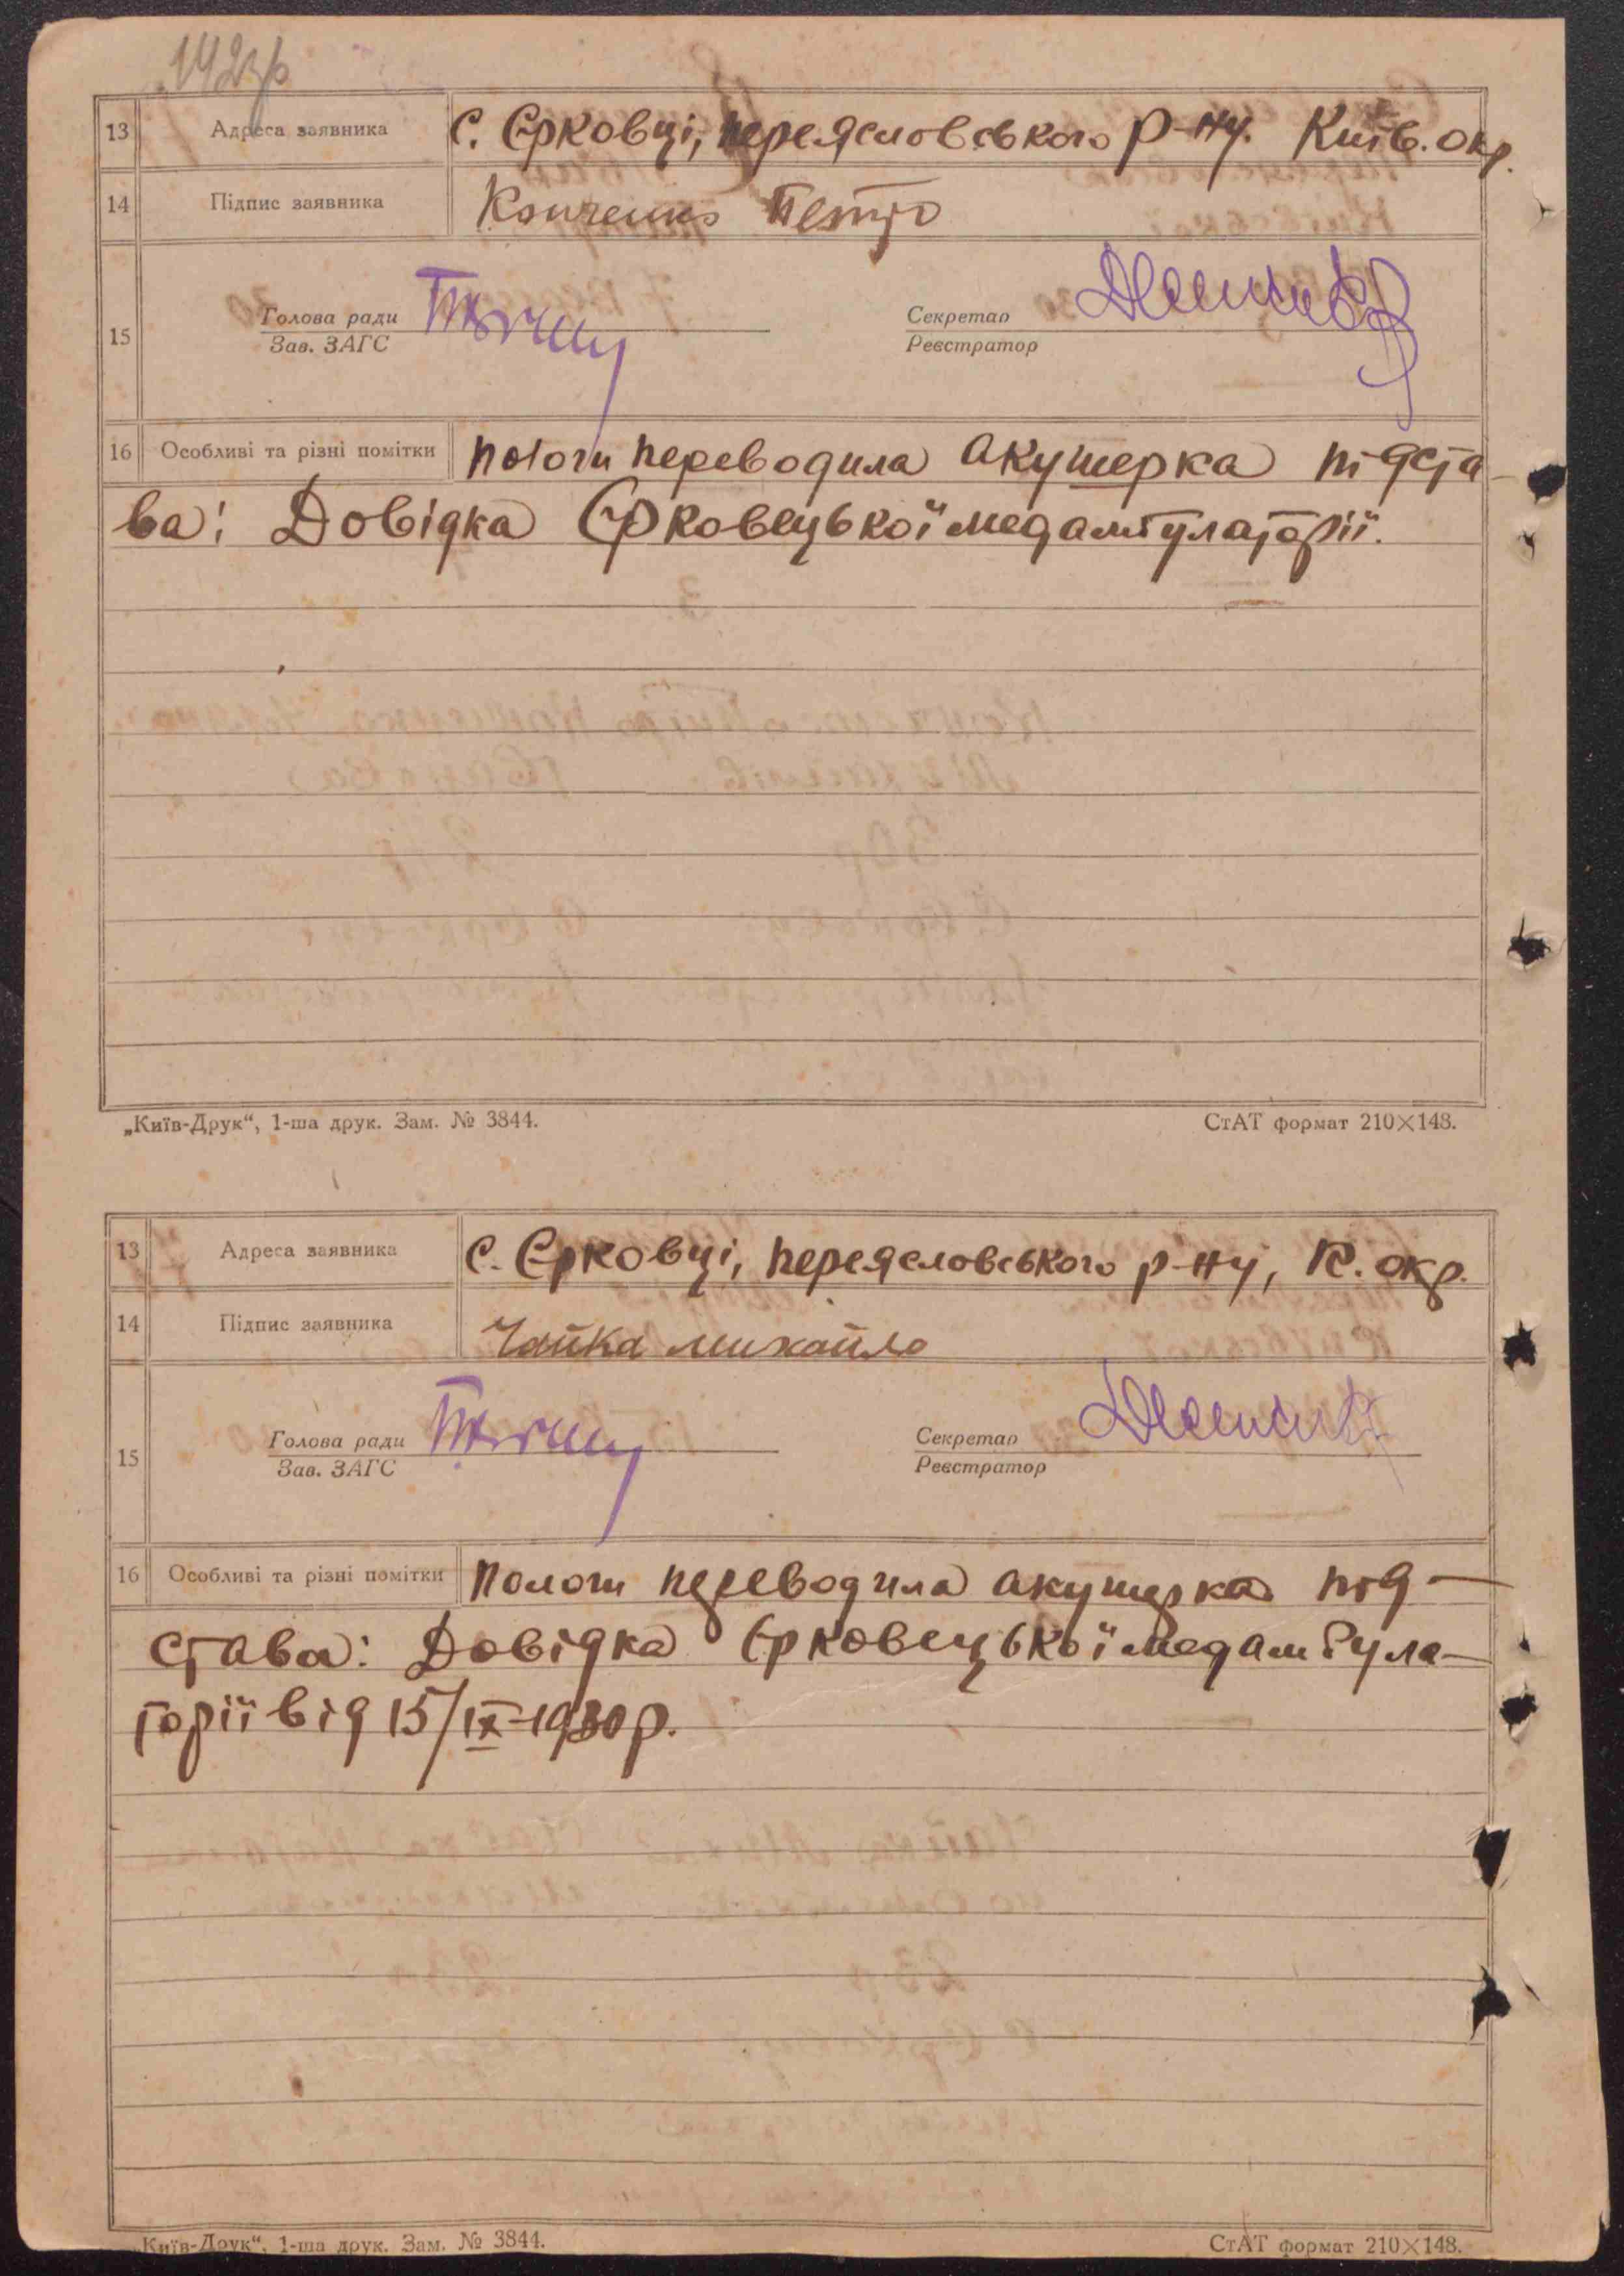 142зв
13 Адреса заявника С. Єрковці, Переясловського р-ну. Київ. окр.
14 Підпис заявника Конченко Петро
15 Голова ради Секретар
Зав. ЗАГС Реєстратор
16 Особливі та різні помітки пологи переводила акушерка підста-
ва: Довідка Єрковецької медамбулаторії.
„Київ-Друк“, 1-ша друк. Зам. № 3844. СтАТ формат 210×148.
13 Адреса заявника С. Єрковці, Переясловського р-ну, К. окр.
14 Підпис заявника Чайка михайло
15 Голова ради Секретар
Зав. ЗАГС Реєстратор
16 Особливі та різні помітки пологи переводила акушерка під-
става: Довідка Єрковецької медамбула-
торії від 15/IX-1930р.
„Київ-Друк“, 1-ша друк. Зам. № 3844. СтАТ формат 210×148.